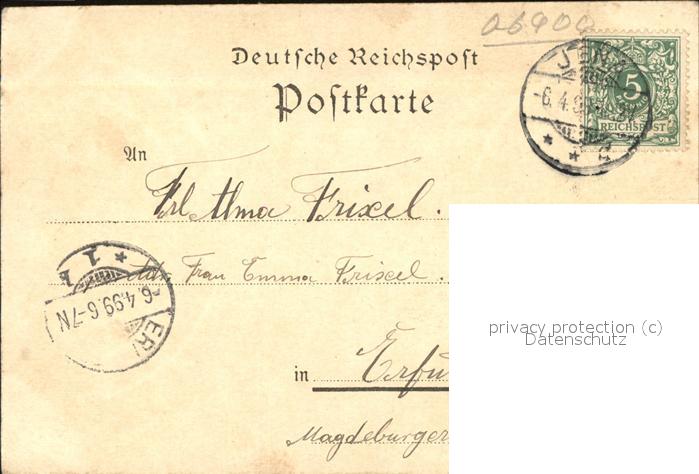 06900
Deutsche Reichspost
Postkarte
JEN
-6.4.9
5
REICHSPOST
An
Frl Alma Frixel.
Adr. Frau Emma Frixel.
1
6.4.99.6-7N
ER
privacy protection (c)
Datenschutz
in Erfu
Magdeburger